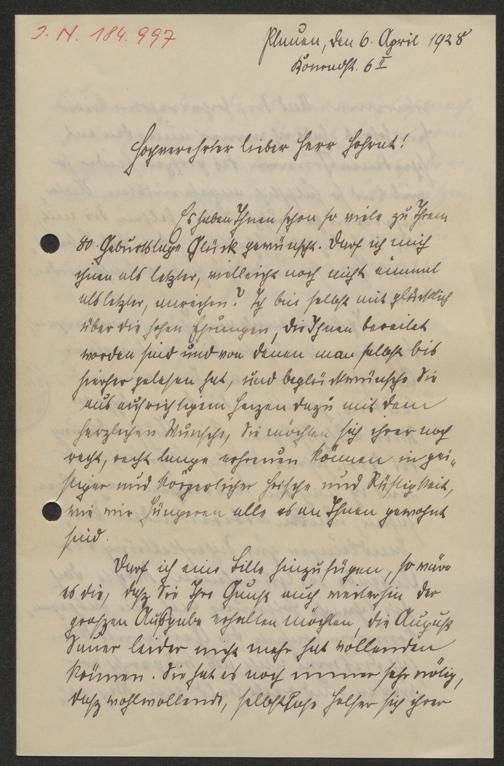 J. N. 184.997
Plauen, den 6. April 1928
Konradst. 6 II
Hochverehrter lieber Herr Hofrat!
Es haben Ihnen schon so viele zu Ihrem
80. Geburtstage Glück gewünscht. Darf ich mich
ihnen als letzter, vielleicht noch nicht einmal
als letzter, anreihen? Ich bin selbst mit glücklich
über die hohen Ehrungen, die Ihnen bereitet
worden sind und von denen man selbst bis
hierher gelesen hat, und beglückwünsche Sie
aus aufrichtigem Herzen dazu mit dem
herzlichen Wunsche, Sie möchten sich ihrer noch
recht, recht lange erfreuen können in gei-
stiger und körperlicher Frische und Rüstigkeit,
wie wir Jüngeren alle es an Ihnen gewohnt
sind.
Darf ich eine Bitte hinzufügen, so wäre
es die, dasz Sie Ihre Gunst auch weiterhin der
groszen Ausgabe erhalten möchten, die August
Sauer leider nicht mehr hat vollenden
können. Sie hat es noch immer sehr nötig,
dasz wohlwollende, selbstlose Helfer sich ihrer